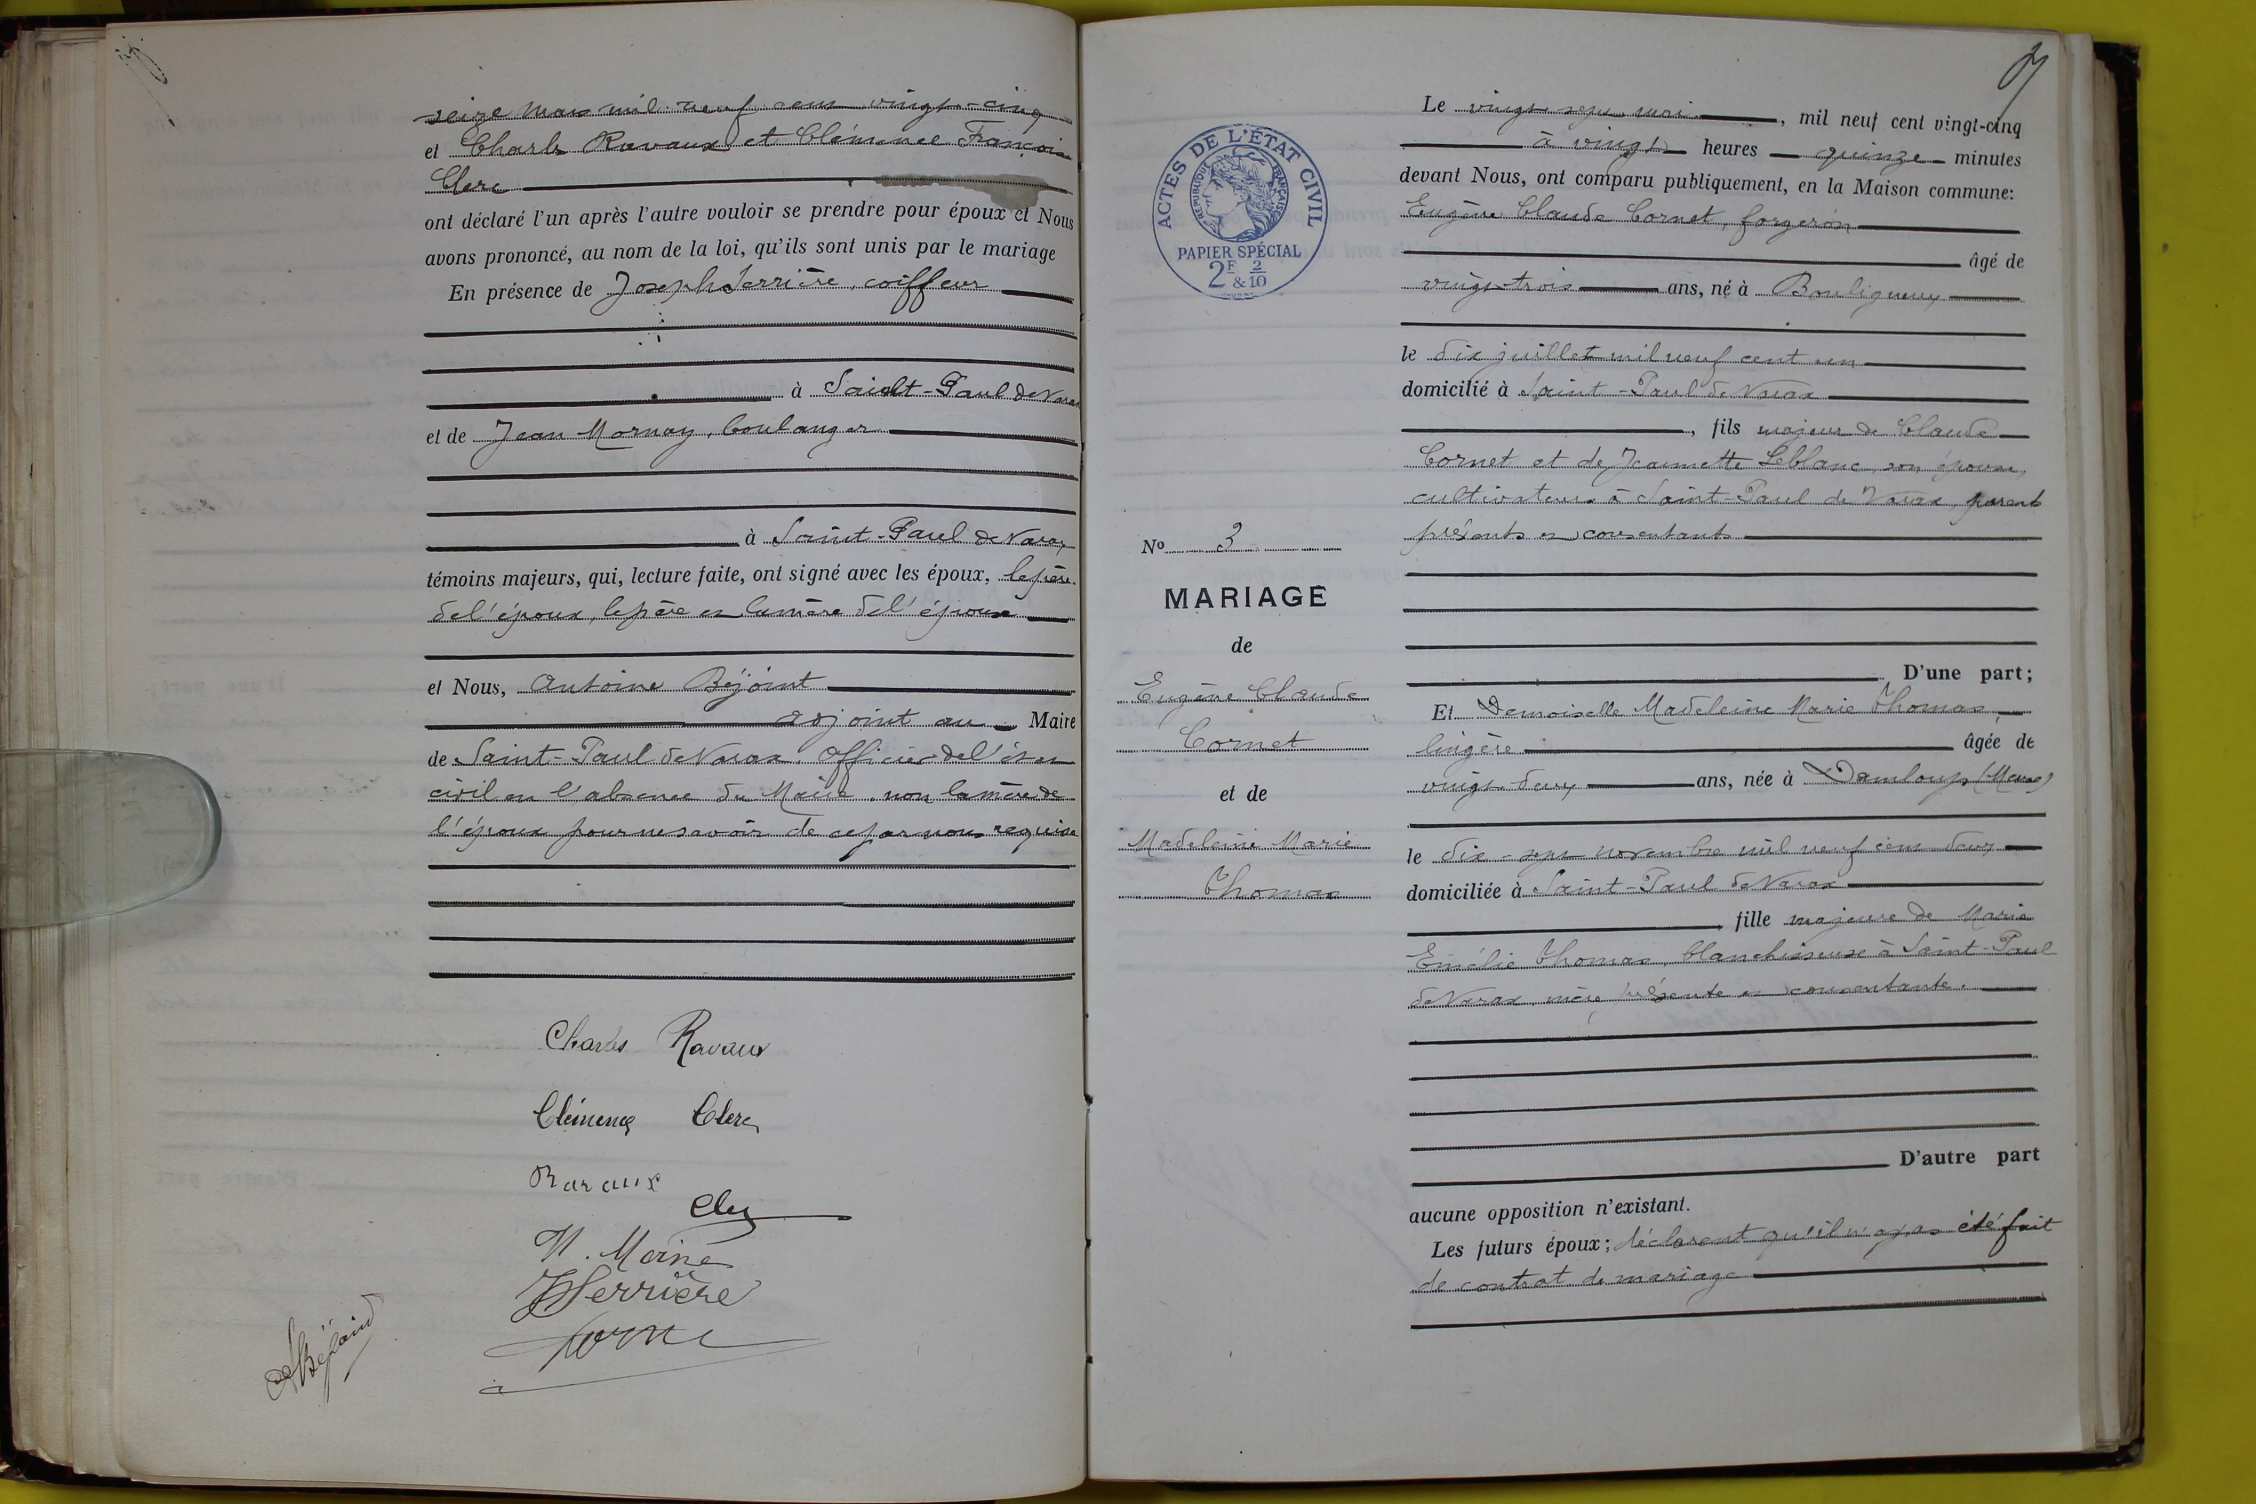 seize mars mil neuf cent vingt-cinq
et Charles Ravaux et Clémence François
Clerc
ont déclaré l'un après l'autre vouloir se prendre pour époux et Nous
avons prononcé, au nom de la loi, qu'ils sont unis par le mariage
En présence de Joseph Serrière, coiffeur
à Saint-Paul de Varax
et de Jean Mornay, boulanger
à Saint-Paul de Varax
témoins majeurs, qui, lecture faite, ont signé avec les époux, le père
de l'époux, le père et la mère de l'épouse
et Nous, Antoine Béjoint
adjoint au Maire
de Saint-Paul de Varax Officier de l'état
civil en l'absence du Maire, non la mère de
l'époux pour ne savoir de ce par nous requise
Charles Ravaux
Clémence Clerc
Ravaux
Clerc
M. Moine
J Serrière
A Béjoint
Le vingt sept mai, mil neuf cent vingt-cinq
à vingt heures quinze minutes
devant Nous, ont comparu publiquement, en la Maison commune:
Eugène Claude Cornet, forgeron
âgé de
vingt-trois ans, né à Bouligneux
le dix juillet mil neuf cent un
domicilié à Saint-Paul de Varax
, fils majeur de Claude
Cornet et de Jeannette Leblanc, son épouse,
cultivateurs à Saint-Paul de Varax, parents
présents et consentants
D'une part;
Et Demoiselle Madeleine Marie Thomas,
lingère âgée de
vingt-deux ans, née à Damloup (Meuse)
le dix-sept novembre mil neuf cent deux
domiciliée à Saint-Paul de Varax
, fille majeure de Marie
Emélie Thomas, blanchisseuse à Saint-Paul
de Varax, mère présente et consentante.
D'autre part
aucune opposition n'existant.
Les futurs époux; déclarent qu'il n'a pas été fait
de contrat de mariage
ACTES DE L'ÉTAT CIVIL
RÉPUBLIQUE FRANÇAISE
PAPIER SPÉCIAL
2F & 2/10
No 3
MARIAGE
de
Eugène Claude
Cornet
et de
Madeleine Marie
Thomas